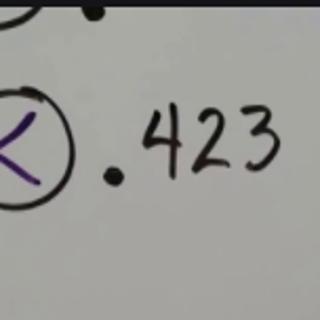 < .423